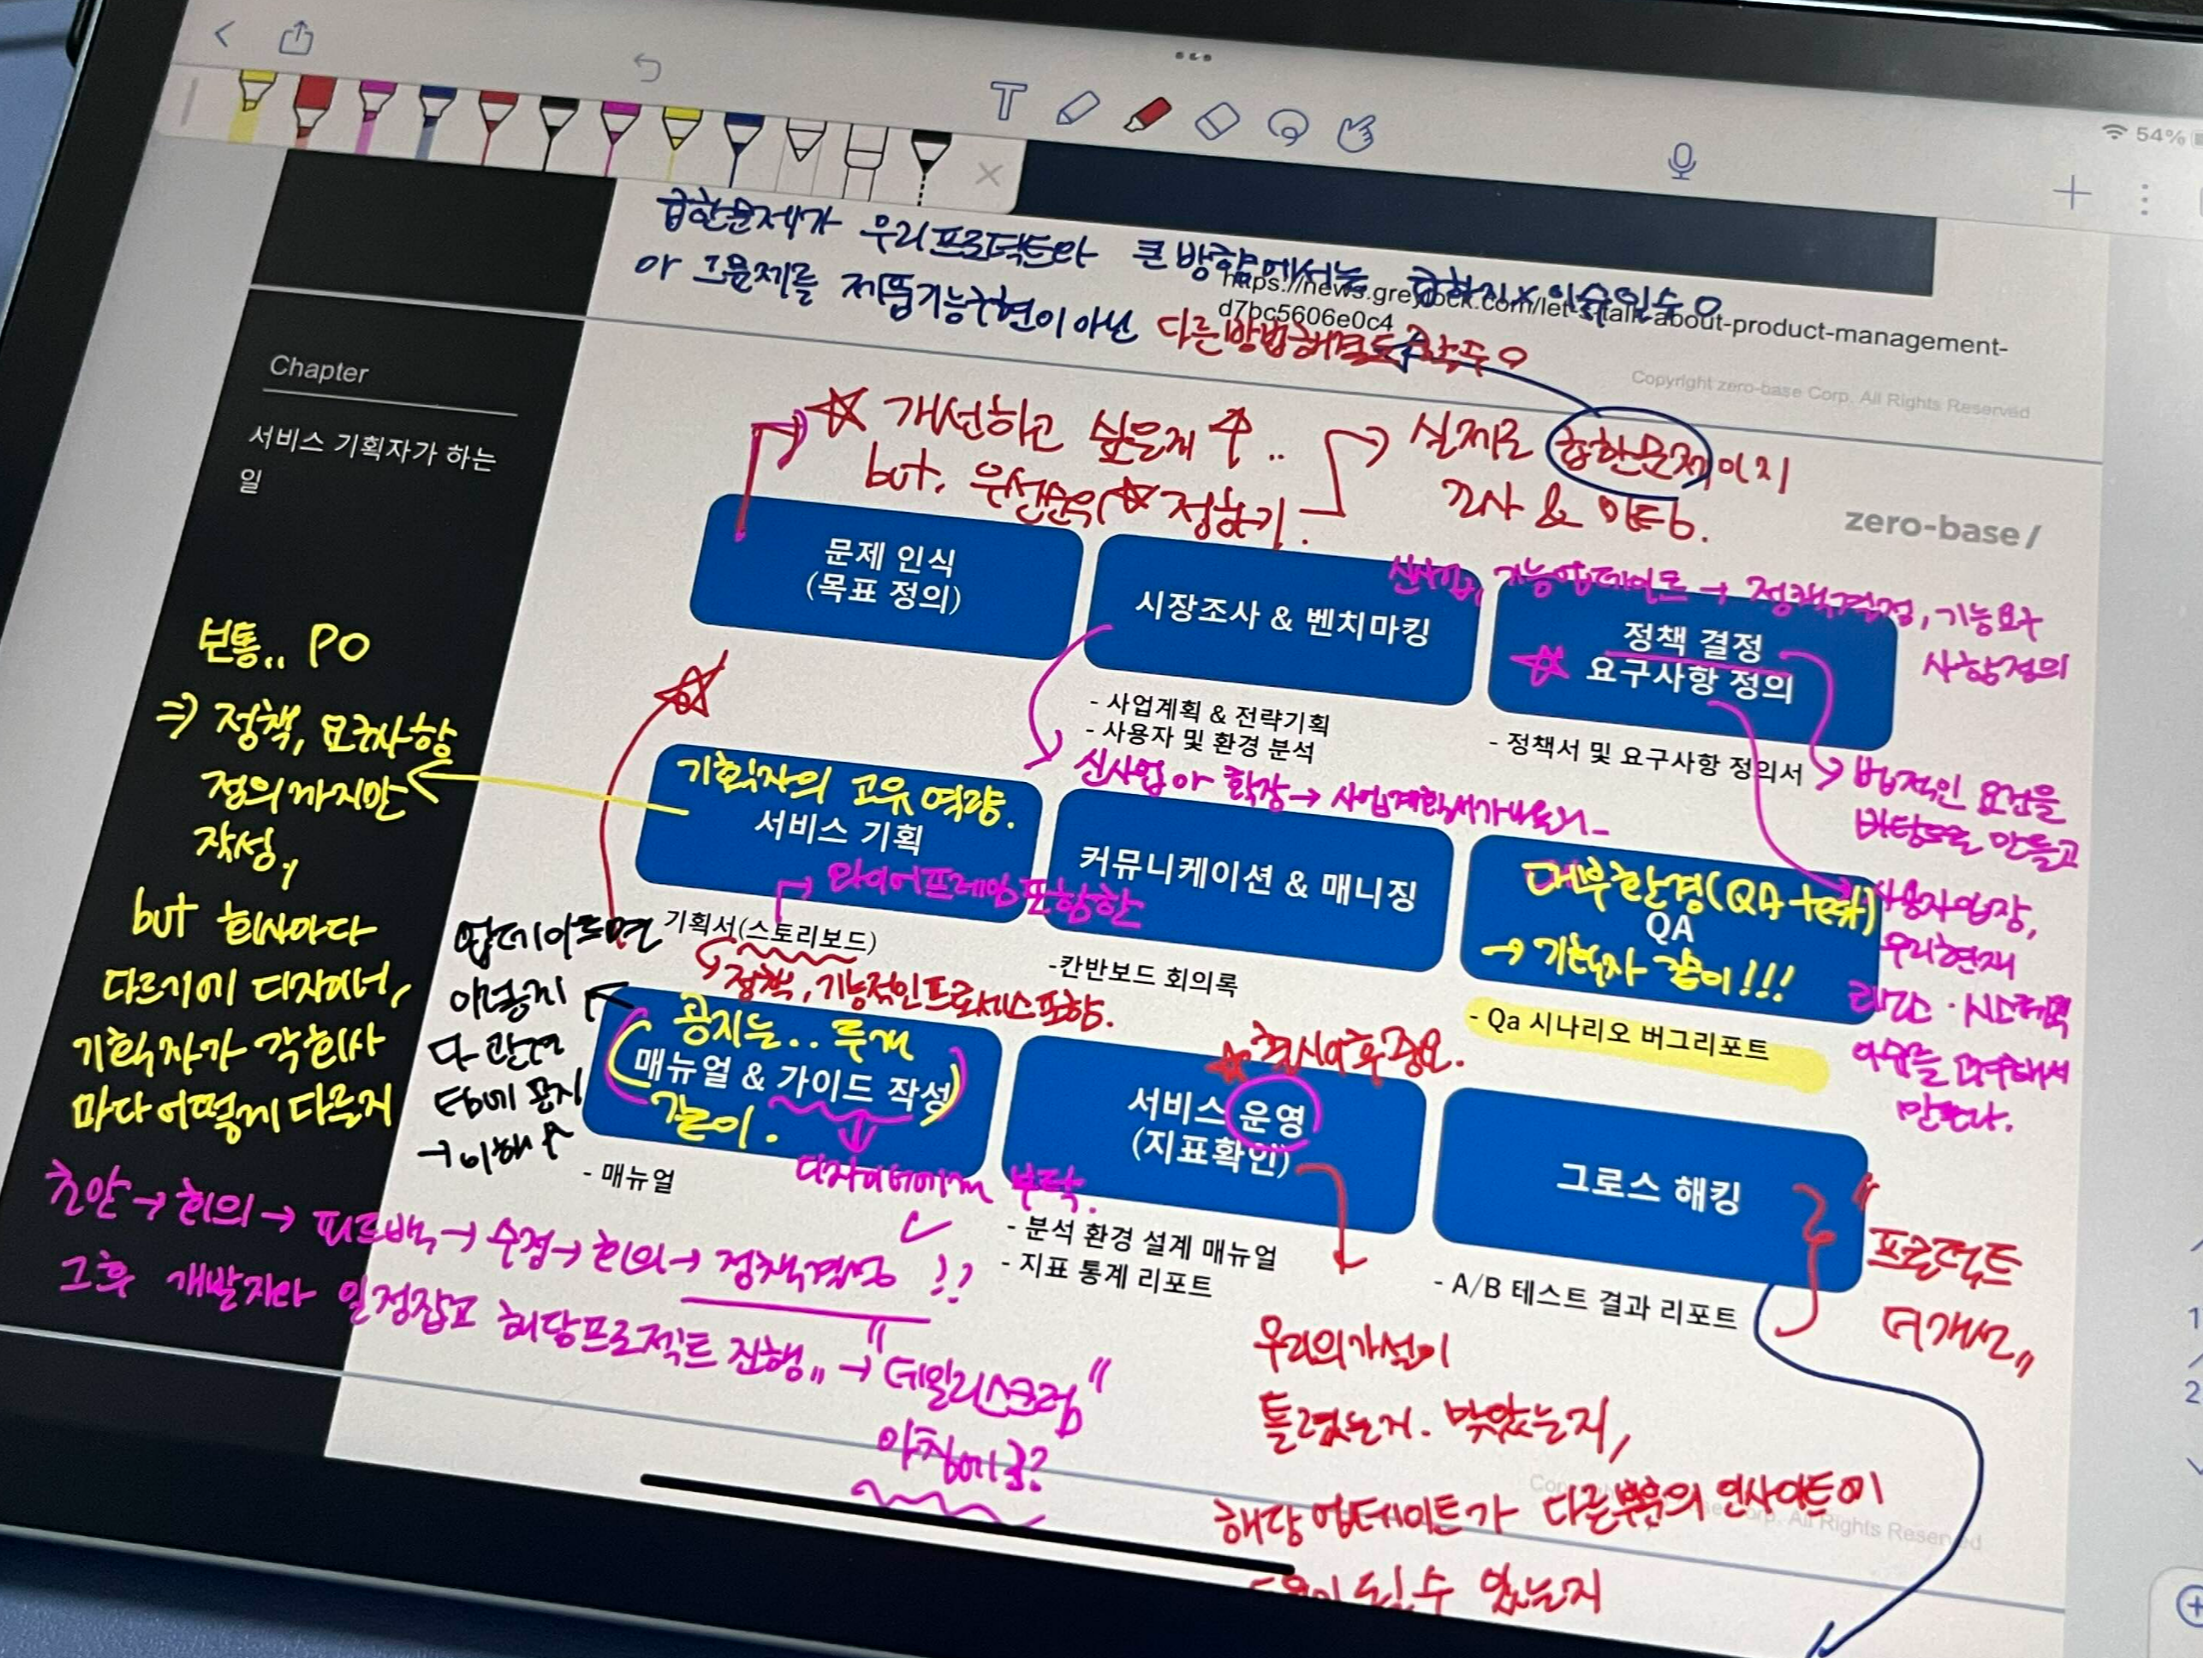 54%
급한문제가 우리프로덕트와 큰 방향에서는 급하지x 이슈일수O
https://news.greylock.com/let-s-talk-about-product-management-
d7bc5606e0c4
아 그문제를 제품기능구현이 아닌 다른방법해결도
Copyright zero-base Corp. All Rights Reserved
Chapter
서비스 기획자가 하는
일
☆ 개선하고 싶은게 ↑..
but, 우선순위 ☆ 정하기.
실제로 급한문제이지
조사 &
zero-base/
문제 인식
(목표 정의)
시장조사 & 벤치마킹
신사업, 기능업데이트 → 정책결정, 기능요구
사항정의
정책 결정
☆ 요구사항 정의
- 사업계획 & 전략기획
- 사용자 및 환경 분석
- 정책서 및 요구사항 정의서
신사업 or 확장 → 사업계획서가
법적인 요건을
바탕으로 만들고
사용자입장,
우리현재
리소스 · 시스템
만든다.
보통.. PO
⇒ 정책, 요구사항
정의까지만
작성,
but 회사마다
다르기에 디자이너,
기획자가 각회사
마다 어떻게 다른지
기획자의 고유 역량.
서비스 기획
→ 와이어프레임 포함한
기획서(스토리보드)
정책, 기능적인프로세스포함.
커뮤니케이션 & 매니징
-칸반보드 회의록
대부환경(QA test)
QA
→ 기획자 같이!!!
- Qa 시나리오 버그리포트
업데이트되면
→ 이해↑
공지는.. 두개
매뉴얼 & 가이드 작성
같이.
- 매뉴얼
디자이너에게 부탁.
서비스 운영
(지표확인)
- 분석 환경 설계 매뉴얼
- 지표 통계 리포트
그로스 해킹
- A/B 테스트 결과 리포트
프로덕트
더개선
초안 → 회의 → 피드백 → 수정 → 회의 → 정책결정 !!
그후 개발자와 일정잡고 해당프로젝트 진행 → "데일리스크럼"
아침에 ?
우리의가설이
틀렸는지. 맞았는지,
해당 업데이트가 다른부분의 인사이트에
될수 있는지